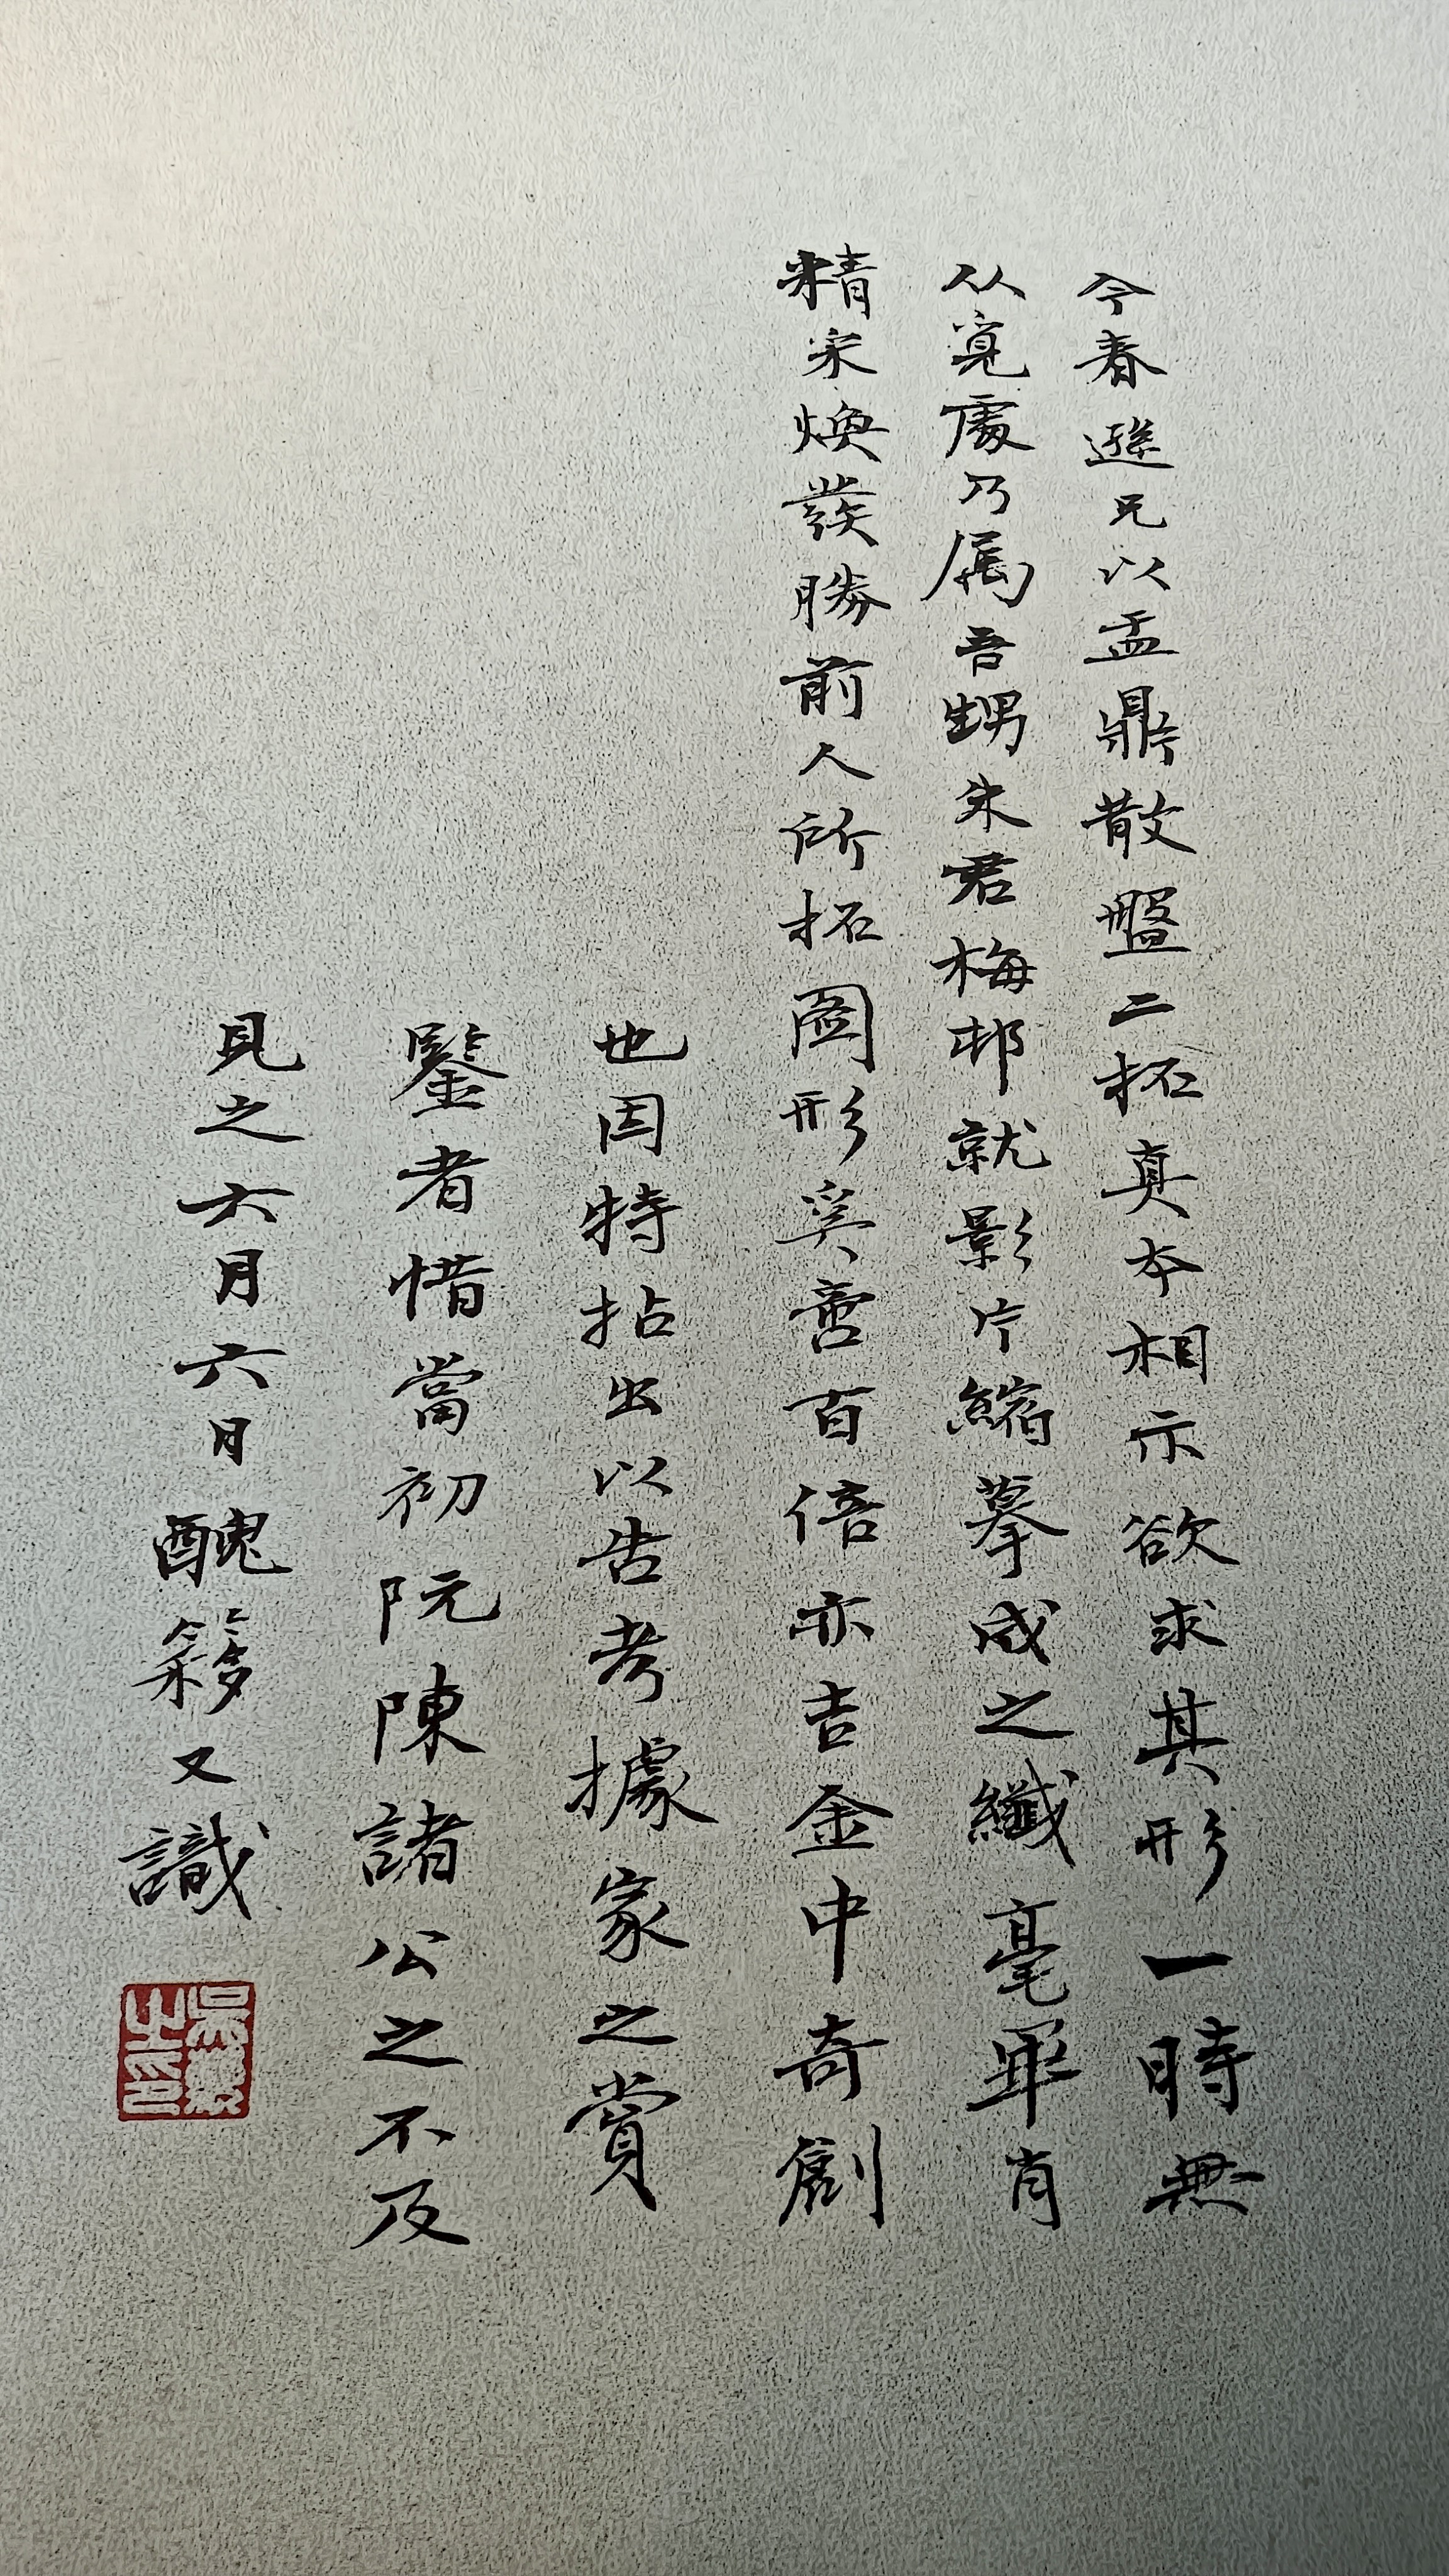 今春遯兄以盂鼎散盤二拓真本相示欲求其形一時無
从覓處乃属吾甥朱君梅邨就影片縮摹成之纖毫畢肖
精采煥發勝前人所拓圖形奚啻百倍亦吉金中奇創
也因特拈出以告考據家之賞
鑒者惜當初阮陳諸公之不及
見之六月六日醜簃又識
吳
之印